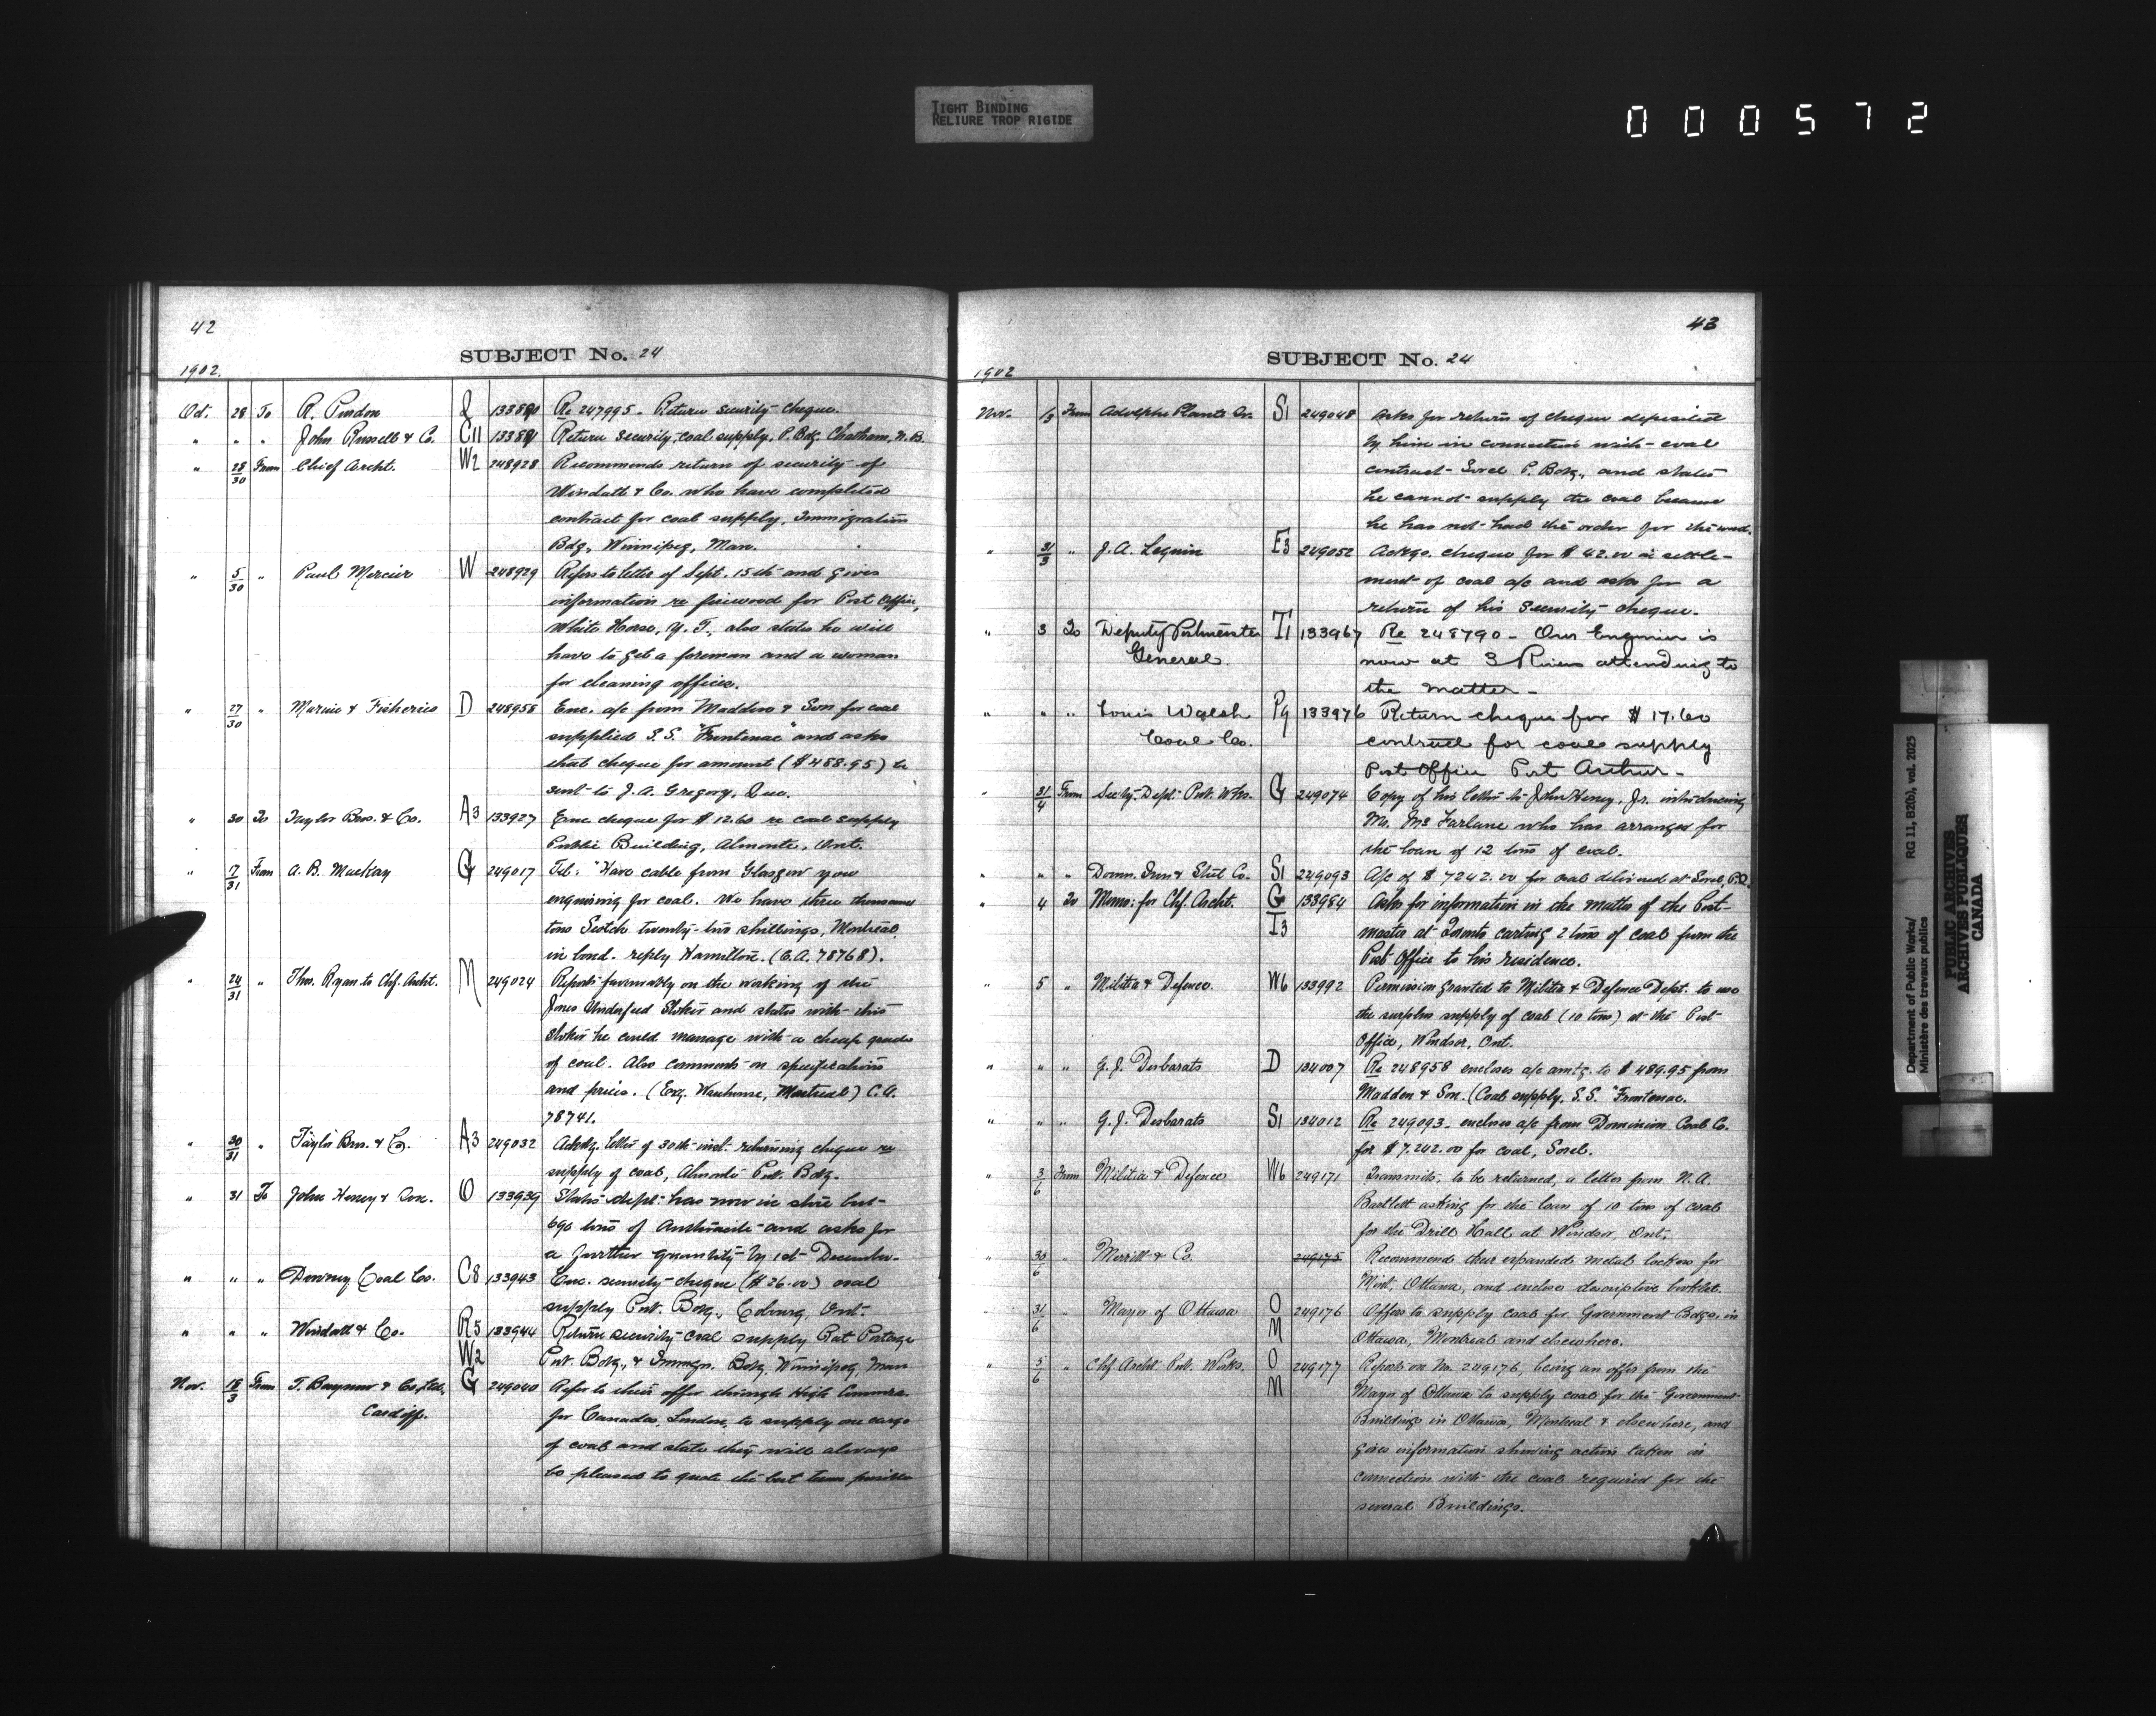 TIGHT BINDING
RELIURE TROP RIGIDE
000572
42
SUBJECT No. 24
1902.
Oct. 28 To R. Purdon L 133880 Re 247995 - Return security cheque.
" " " John Russell & Co. C11 133881 Return security, coal supply, P. Bdg. Chatham, N.B.
" 28/30 From Chief Archt. W2 248928 Recommends return of security of
Windatt & Co. who have completed
contract for coal supply, Immigration
Bdg., Winnipeg, Man.
" 5/30 " Paul Mercier W 248929 Refers to letter of Sept. 15th and gives
information re firewood for Post Office,
White Horse, Y.T., also states he will
have to get a foreman and a woman
for cleaning offices.
" 27/30 " Marine & Fisheries D 248958 Enc. a/c from Madden & Son for coal
supplied S.S. "Frontenac" and asks
that cheque for amount ($488.95) be
sent to J.A. Gregory, Que.
" 30 To Taylor Bros. & Co. A3 133927 Enc cheque for $12.60 re coal supply
Public Building, Almonte, Ont.
" 17/31 From A.B. Mackay G 249017 Tel: "Have cable from Glasgow you
enquiring for coal. We have three thousand
tons Scotch twenty-two shillings, Montreal,
in bond. reply Hamilton. (C.A. 78768).
" 24/31 " Thos. Ryan to Chf. Archt. M 249024 Reports favorably on the working of the
Jones Underfeed Stoker and states with this
Stoker he could manage with a cheap grade
of coal. Also comments on specifications
and prices. (Exg. Warehouse, Montreal) C.A.
78741.
" 30/31 " Taylor Bros. & Co. A3 249032 Ackdg. letter of 30th inst. returning cheque re
supply of coal, Almonte Pub. Bdg.
" 31 To John Heney & Son. O 133939 States dept. has now in store but
690 tons of Anthracite and asks for
a further quantity by 1st December.
" " " Downey Coal Co. C8 133943 Enc. security cheque ($26.00) coal
supply Pub. Bdg., Cobourg, Ont.
" " " Windatt & Co. R5 133944 Return security coal supply Rat Portage
W2 Pub. Bdg., & Immgn. Bdg. Winnipeg, Man
Nov. 18/3 From T. & Co., Ltd., G 249040 Refer to their offer through High Commr.
Cardiff. for Canada, London, to supply one cargo
of coal and state they will always
be pleased to quote the best terms possible
43
SUBJECT No. 24
1902
Nov. 1/3 From Adolphe S1 249048 Asks for return of cheque deposited
by him in connection with coal
contract Sorel P. Bdg., and states
he cannot supply the coal because
he has not had the order for the wood.
" 31/3 " J.A. Seguin E3 249052 Ackgs. cheque for $42.00 in settle-
ment of coal a/c and asks for a
return of his security cheque.
" 3 To Deputy Postmaster T1 133967 Re 248790 - Our Engineer is
General. now at 3 Rivers attending to
the matter -
" " " Louis Walsh P9 133976 Return cheque for $17.60
Coal Co. contract for coal supply
Post Office Port Arthur -
" 31/4 From Secty. Dept. Pub. Wks. G 249074 Copy of his letter to John Heney, Jr. introducing
Mr. McFarlane who has arranged for
the loan of 12 tons of coal.
" " " Domn. Iron & Steel Co. S1 249093 A/c of $7242.00 for coal delivered at Sorel, P.Q.
" 4 To Memo: for Chf. Archt. G 133984 Asks for information in the matter of the Post-
T3 master at Toronto carting 2 tons of coal from the
Post Office to his residence.
" 5 " Militia & Defence. W6 133992 Permission granted to Militia & Defence Dept. to use
the surplus supply of coal (10 tons) at the Post
Office, Windsor, Ont.
" " " G.J. Desbarats D 134007 Re 248958 encloses a/c amtg. to $489.95 from
Madden & Son. (Coal supply, S.S. "Frontenac.
" " " G.J. Desbarats S1 134012 Re 249093. encloses a/c from Dominion Coal Co.
for $7.242.00 for coal, Sorel.
" 3/6 From Militia & Defence W6 249171 Transmits, to be returned, a letter from N.A.
Bartlett asking for the loan of 10 tons of coal
for the Drill Hall at Windsor, Ont.
" 30/6 " Merrill & Co. 249175 Recommend their expanded metal lockers for
Mint, Ottawa, and enclose descriptive booklet.
" 31/6 " Mayor of Ottawa O 249176 Offers to supply coal for Government Bdgs. in
M Ottawa, Montreal and elsewhere.
" 5/6 " Chf. Archt. Pub. Works. O 249177 Reports on No. 249176, being an offer from the
M Mayor of Ottawa to supply coal for the Government
Buildings in Ottawa, Montreal & elsewhere, and
gives information showing action taken in
connection with the coal required for the
several Buildings.
Department of Public Works/
Ministère des travaux publics
RG 11, B2(b), vol. 2025
PUBLIC ARCHIVES
ARCHIVES PUBLIQUES
CANADA